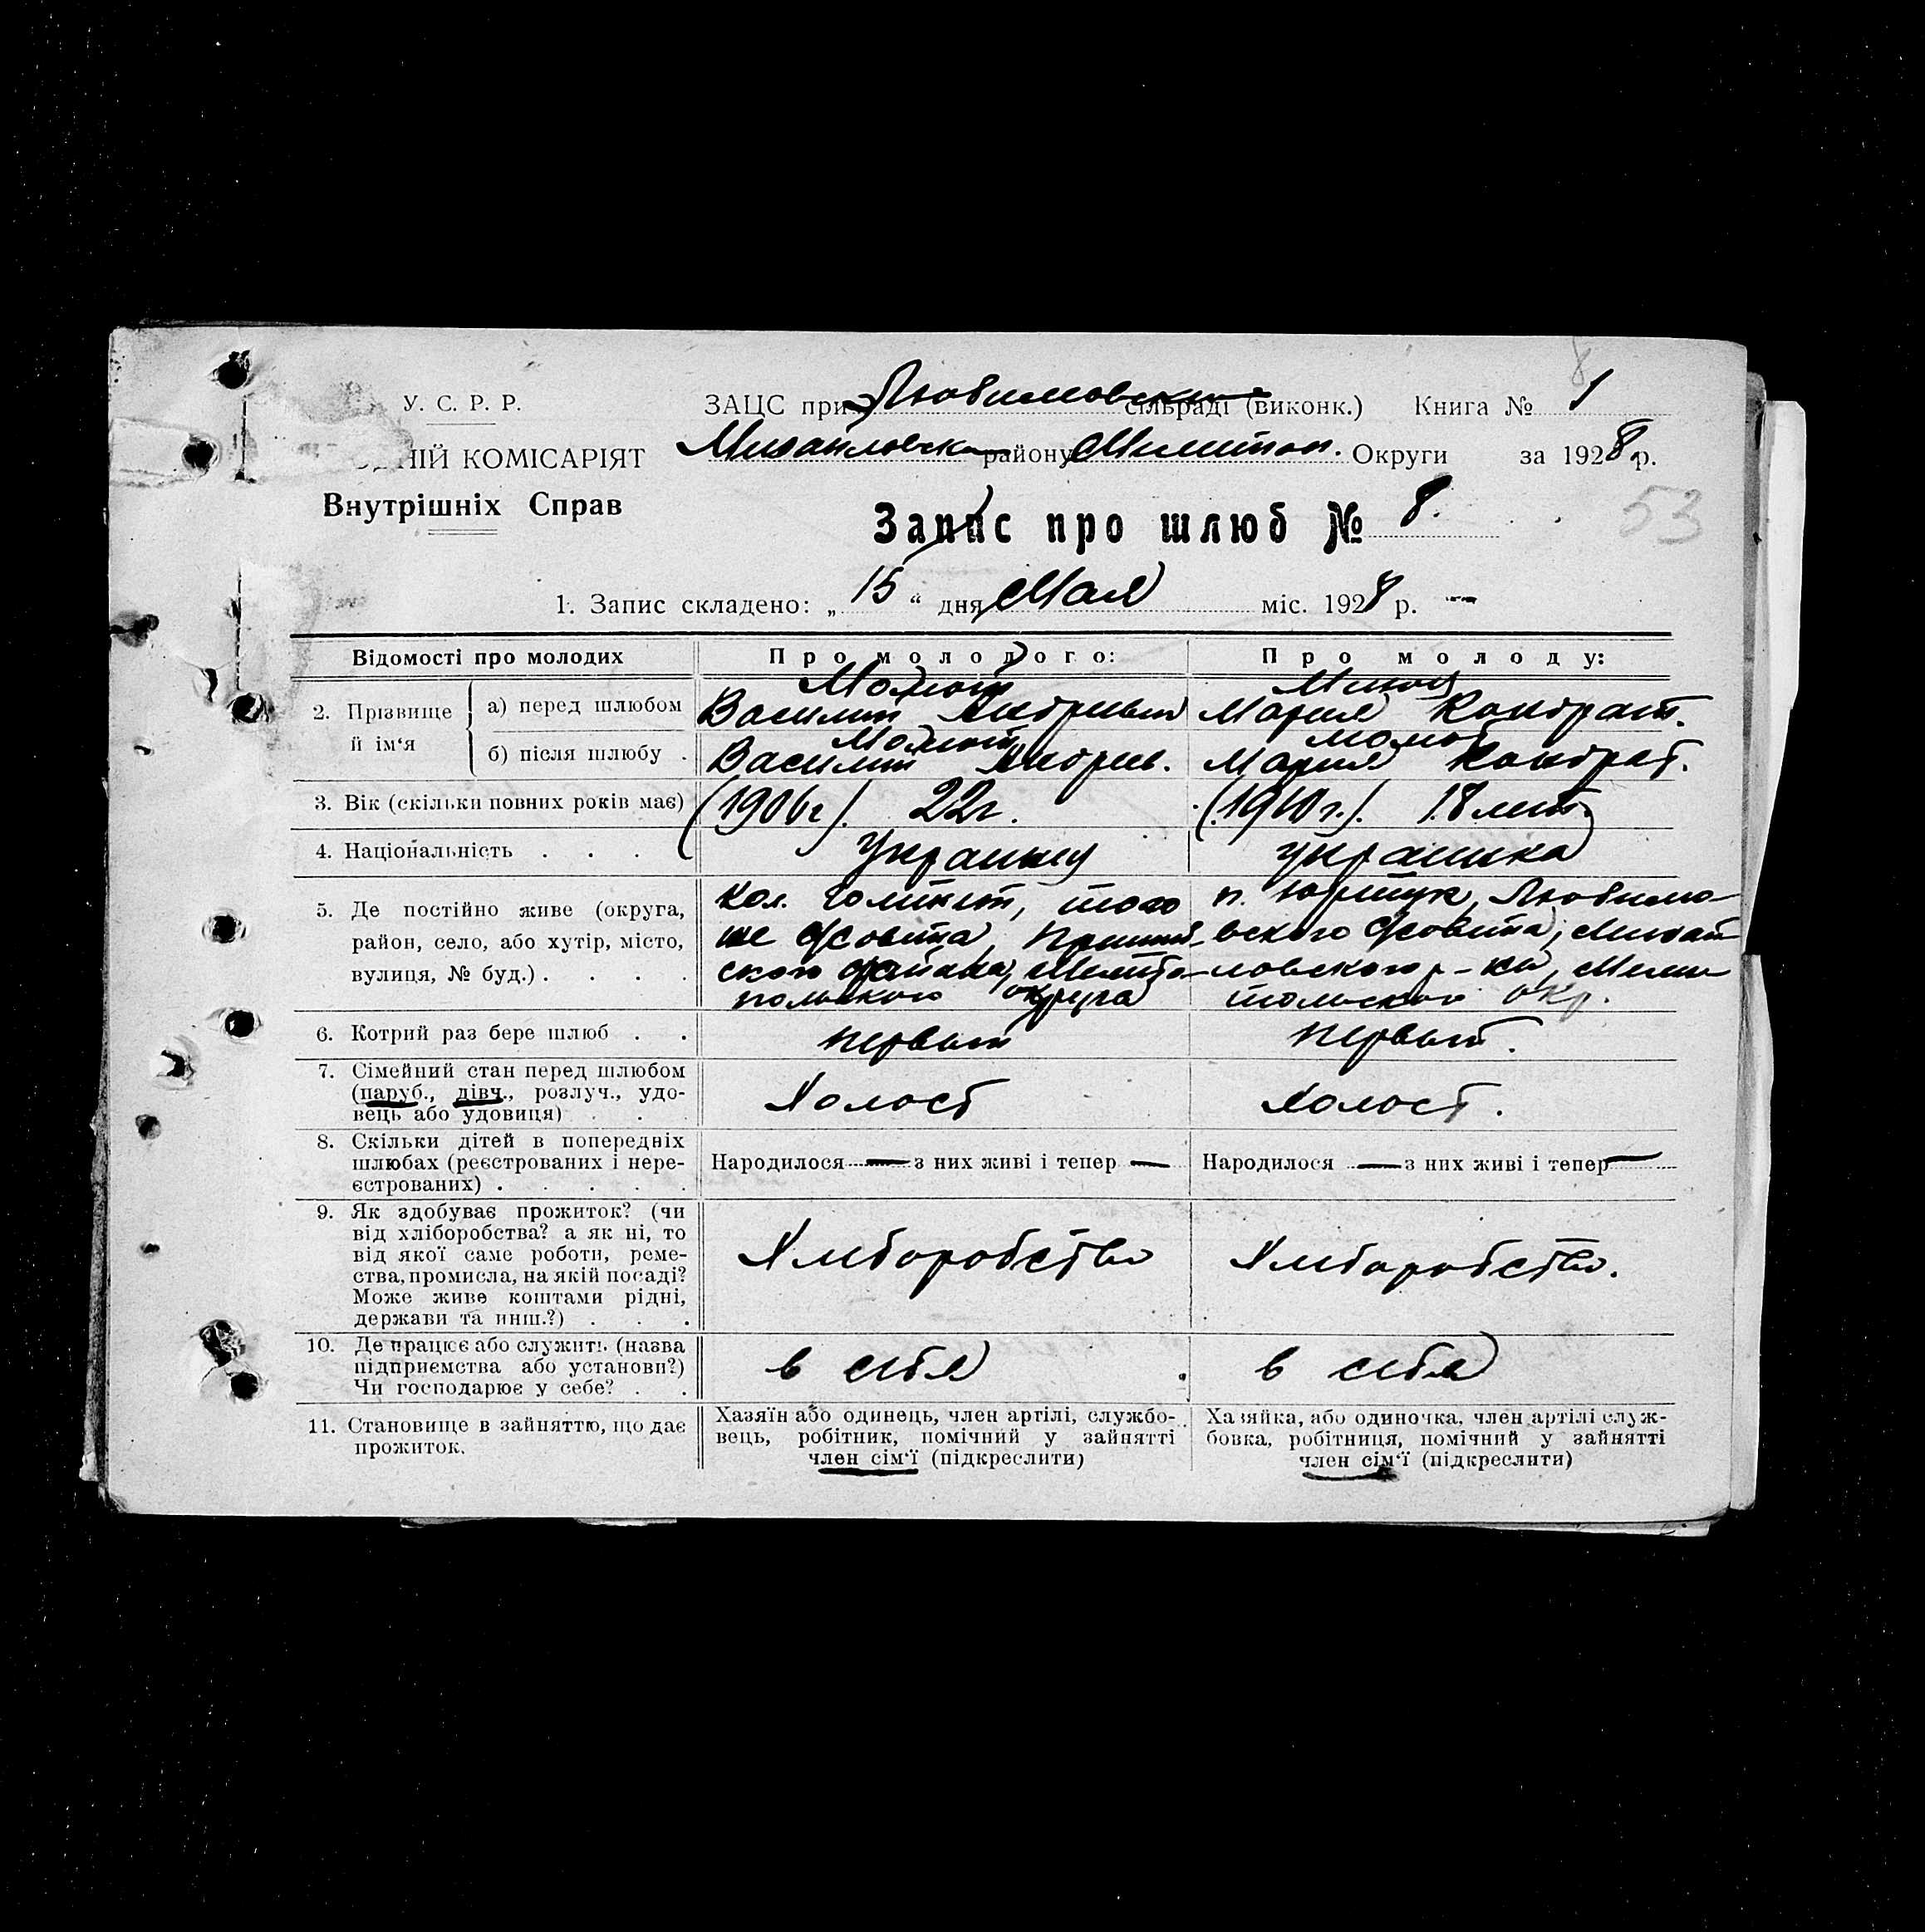 У. С. Р. Р.
ЗАЦС при Любимовск сільраді (виконк.) Книга № 1
8
НІЙ КОМІСАРІЯТ
Михайловск району Мелитоп. Округи за 1928 р.
Внутрішніх Справ
53
Запис про шлюб № 8.
1. Запис складено: „ 15 “ дня Мая міс. 1928 р.
Відомості про молодих
Про молодого:
Про молоду:
2. Прізвище й ім‘я
а) перед шлюбом
Момот
Василий Андреевич
Мария Кондрат.
б) після шлюбу .
Момот
Василий Андреев.
Момот
Мария Кондрат.
3. Вік (скільки повних років має)
(1906 г). 22 г.
(1910 г.). 18 лет.
4. Національність . . .
Украинец
украинка
5. Де постійно живе (округа,
район, село, або хутір, місто,
вулиця, № буд.) . . . .
кол. того
же с/совета,
ского района, Мелито-
польского округа
п. Юртук, Любимо-
вского с/совета, Михай-
ловского р-на, Мели-
топольского окр.
6. Котрий раз бере шлюб . .
первый
первый.
7. Сімейний стан перед шлюбом
(паруб., дівч., розлуч., удо-
вець або удовиця) . . .
Холост
Холост.
8. Скільки дітей в попередніх
шлюбах (реєстрованих і нере-
єстрованих) . . . . .
Народилося — з них живі і тепер —
Народилося — з них живі і тепер —
9. Як здобуває прожиток? (чи
від хліборобства? а як ні, то
від якої саме роботи, реме-
ства, промисла, на якій посаді?
Може живе коштами рідні,
держави та инш.?) . . .
Хлеборобство
Хлеборобство.
10. Де працює або служить (назва
підприємства або установи?)
Чи господарює у себе? . .
в себя
в себя
11. Становище в зайняттю, що дає
прожиток.
Хазяїн або одинець, член артілі, службо-
вець, робітник, помічний у зайнятті
член сім‘ї (підкреслити)
Хазяйка, або одиночка, член артілі служ-
бовка, робітниця, помічний у зайнятті
член сім‘ї (підкреслити)